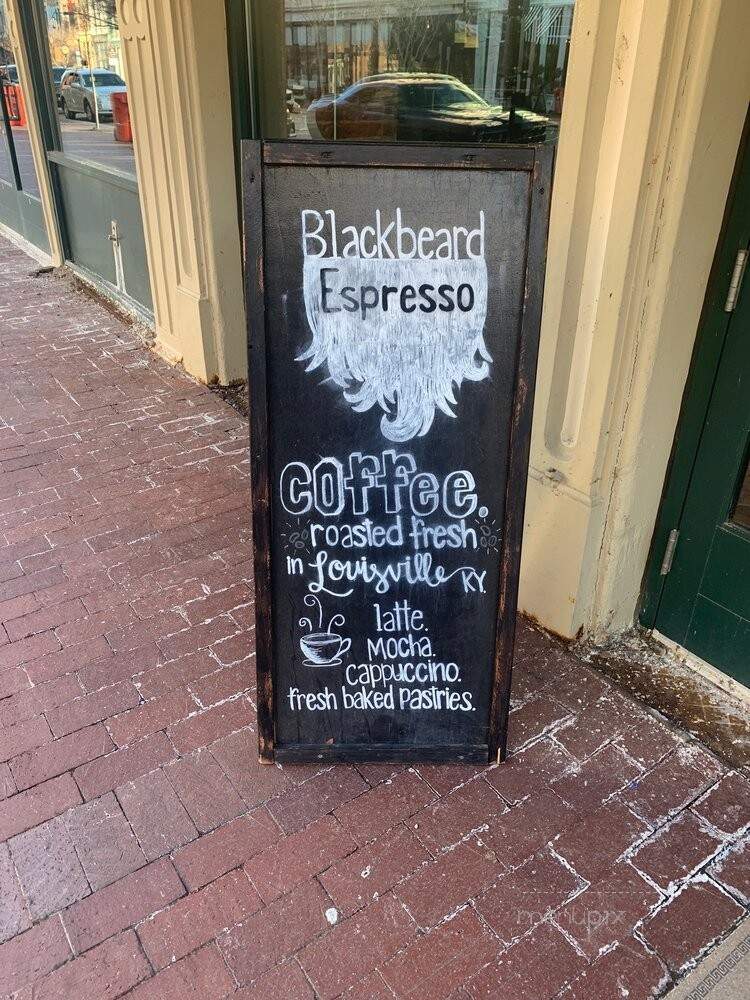 Blackbeard
Espresso
coffee.
roasted fresh
in Louisville KY.
latte.
Mocha.
cappuccino.
fresh baked pastries.
menupix